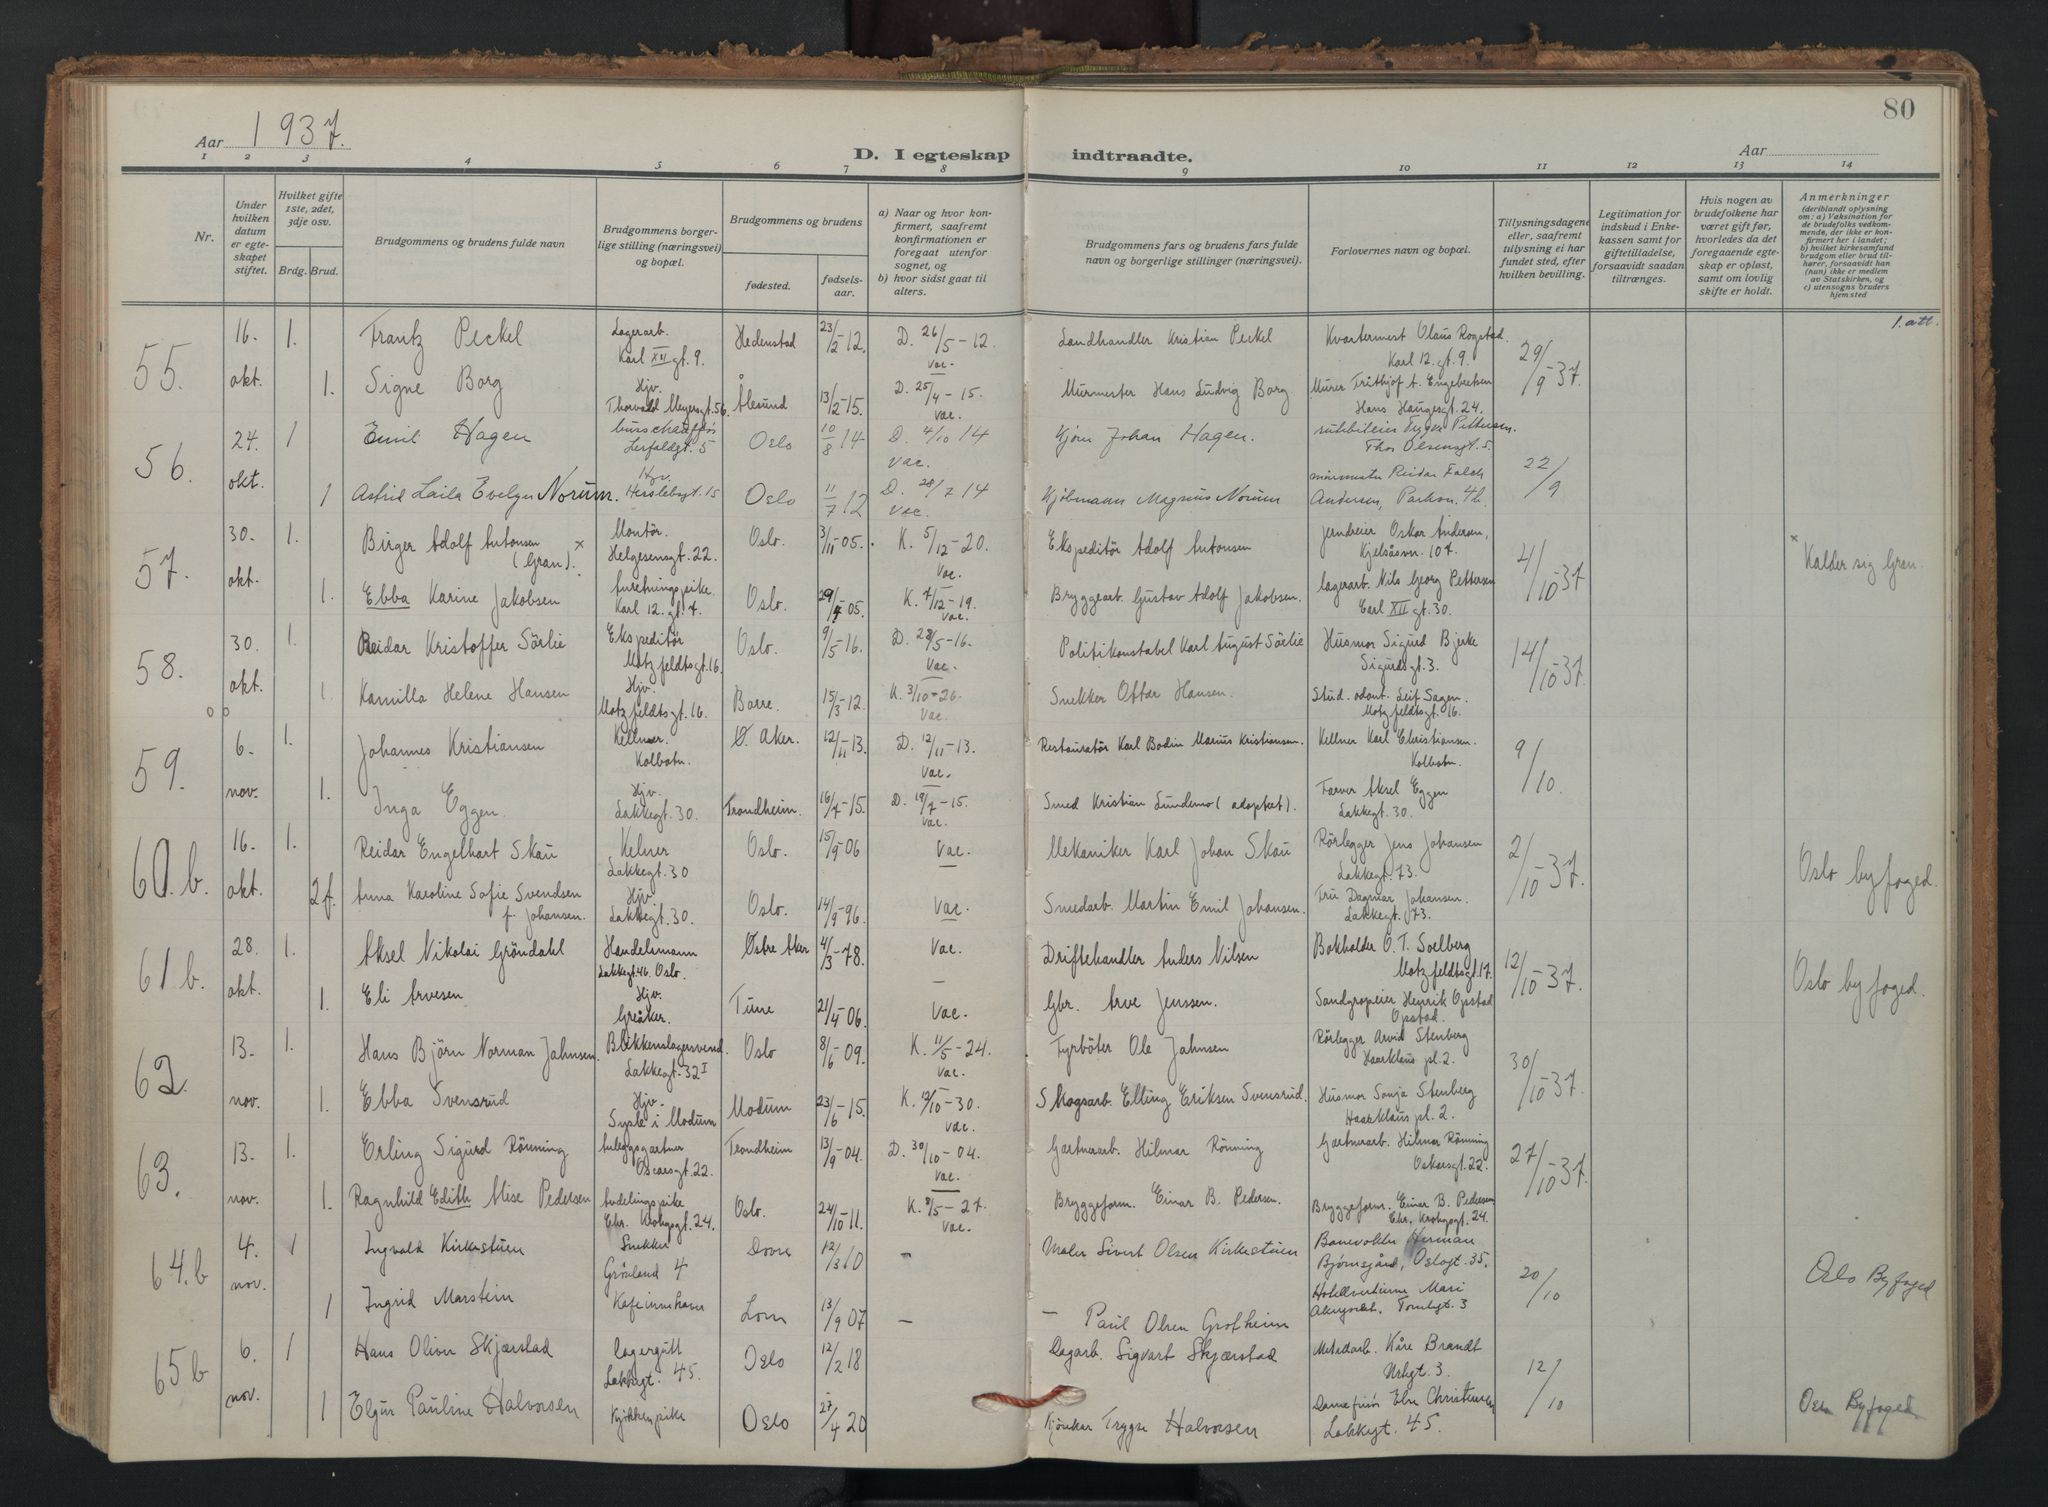 80
Aar 1937.
D. I egteskap indtraadte.
Aar
1 2 3 4 5 6 7 8 9 10 11 12 13 14
Nr.
Under hvilken datum er egteskapet stiftet.
Hvilket gifte 1ste, 2det, 3dje osv.
Brdg. Brud.
Brudgommens og brudens fulde navn
Brudgommens borgerlige stilling (næringsvei) og bopæl.
Brudgommens og brudens
fødested.
fødselsaar.
a) Naar og hvor konfirmert, saafremt konfirmationen er foregaat utenfor sognet, og
b) hvor sidst gaat til alters.
Brudgommens fars og brudens fars fulde navn og borgerlige stillinger (næringsvei).
Forlovernes navn og bopæl.
Tillysningsdagene eller, saafremt tillysning ei har fundet sted, efter hvilken bevilling.
Legitimation for indskud i Enkekassen samt for giftetilladelse, forsaavidt saadan tiltrænges.
Hvis nogen av brudefolkene har været gift før, hvorledes da det foregaaende egteskap er opløst, samt om lovlig skifte er holdt.
Anmerkninger
(deriblandt oplysning om: a) Vaksination for de brudefolks vedkommende, der ikke er konfirmert her i landet; b) hvilket kirkesamfund brudgom eller brud tilhører, forsaavidt han (hun) ikke er medlem av Statskirken, og c) utensogns bruders hjemsted
55. 16. okt. 1. Frantz Peckel Lagerarb. Karl XII gt. 9. Hedenstad 23/2-12. D. 26/5-12. vac. Landhandler Kristian Peckel Kvartermest Olaus Rogstad. Karl 12. gt. 9. 29/9-37. 1. att.
1. Signe Borg Hjv. Thorvald Meyersgt. 56. Ålesund 13/2-15. D. 25/4-15. vac. Murmester Hans Ludvig Borg. Murer Frithjof A. Engebretsen Hans Haugesgt. 24.
56. 24. okt. 1 Emil Hagen Lerfaldgt. 5 Oslo 10/8 14 D. 4/10 14 vac. Johan Hagen. Pettersen. Thor Olsensgt. 5. 22/9
1 Astrid Laila Evelyn Norum. Hjv. Herslebsgt. 15 Oslo 11/7 12 D. 28/7 14 vac. Kjølmann Magnus Norum Reidar Falch Andersen, Parkvn. 4b.
57. 30. okt. 1. Birger Adolf Antonsen (Gran). x Montör. Helgesensgt. 22. Oslo. 3/11-05. K. 5/12-20. vac. Ekspeditör Adolf Antonsen jerndreier Oskar Andersen, Kjelsåsvn. 107. 4/10-37 x Kalder sig Gran.
1. Ebba Karine Jakobsen forretningspike. Karl 12. gt. 7. Oslo. 29/7-05. K. 7/12-19. vac. Bryggearb. Gustav Adolf Jakobsen. lagerarb. Nils Georg Pettersen Carl XII gt. 30.
58. 30. okt. 1. Reidar Kristoffer Sörlie Ekspeditör Motzfeldtsgt. 16. Oslo. 9/5-16. D. 28/5-16. vac. Politikonstabel Karl August Sörlie Husmor Sigurd Bjerke Sigurdsgt. 3. 14/10-37.
1. Kamilla Helene Hansen Hjv. Motzfeldtsgt. 16. Borre. 15/3-12. K. 3/10-26. vac. Snekker Ottar Hansen. Stud. odont. Leif Sagen. Motzfeldtsgt. 16.
59. 6. nov. 1. Johannes Kristiansen Kellner. Kolbotn. Ø. Aker. 12/11-13. D. 12/11-13. vac. Restauratör Karl Bodin Marius Kristiansen. Kellner Karl Christiansen. Kolbotn. 9/10.
1. Inga Eggen. Hjv. Lakkegt. 30. Trondheim. 16/7-15. D. 19/7-15. vac. Smed Kristian Lundemo (adoptert). Farver Aksel Eggen Lakkegt. 30.
60. b. 16. okt. 1. Reidar Engelhart Skau Kelner Lakkegt. 30 Oslo. 15/9-06 vac. Mekaniker Karl Johan Skau Rörlegger Jens Johansen Lakkegt. 73. 2/10-37. Oslo byfoged.
2 f. Anna Karoline Sofie Svendsen f. Johansen. Hjv. Lakkegt. 30. Oslo. 14/9-96. vac. Smedarb. Martin Emil Johansen. Fru Dagmar Johansen. Lakkegt. 73.
61 b. 28. okt. 1. Aksel Nikolai Gröndahl Handelsmann Lakkegt. 46. Oslo. Østre Aker 4/3-78. Vac. Driftehandler Anders Nilsen Bokholder O. T. Solberg Motzfeldtsgt. 17. 12/10-37. Oslo byfoged.
1. Eli Arvesen Hjv. Greåker. Tune 21/4-06. Vac. Gbr. Arve Jenssen. Sandgropeier Henrik Opstad Opstad.
62. 13. nov. 1. Hans Björn Norman Jahnsen. Blikkenslagersvend. Lakkegt. 32 I Oslo 8/6-09. K. 11/5-24. vac. Fyrböter Ole Jahnsen Rörlegger Arvid Stenberg Haarklaus pl. 2. 30/10-37.
1. Ebba Svensrud Hjv. Sysle i Modum Modum 23/6-15. K. 12/10-30. vac. Skogsarb. Elling Eriksen Svensrud. Husmor Sonja Stenberg Haarklaus pl. 2.
63. 13. nov. 1. Erling Sigurd Rönning Anleggsgartner Oscarsgt. 22. Trondheim 13/9-04. D. 30/10-04. vac. Gartnerarb. Hilmar Rönning Gartnerarb. Hilmar Rönning Oskarsgt. 22. 27/10-37.
1. Ragnhild Edith Alise Pedersen Avdelingspike Chr. Krohgsgt. 24. Oslo. 24/10-11. K. 8/5-27. vac. Bryggeform. Einar B. Pedersen. Bryggeform. Einar B. Pedersen Chr. Krohgsgt. 24.
64. b 4. nov. 1 Ingvald Kirkestuen Snekker Grönland 4 Dovre 12/3 10 - Maler Sivert Olsen Kirkestuen Herman Bjørnsgård, Oslogt. 35. 20/10 Oslo Byfoged
1 Ingrid Marstein Kafeinnehaver Lom 13/9 07 - Paul Olsen Grofheim Mari Tomtegt. 3
65 b 6. nov. 1 Hans Oliver Skjærstad Lagergutt Lakkegt. 45. Oslo 12/2 18 Lagarb. Sigvart Skjærstad Metallarb. Kåre Brandt Urtegt. 3. 12/10 Oslo Byfoged
1 Pauline Halvorsen Kjøkkenpike Oslo 27/4 20 Kjørekar Trygve Halvorsen Lakkegt. 45.